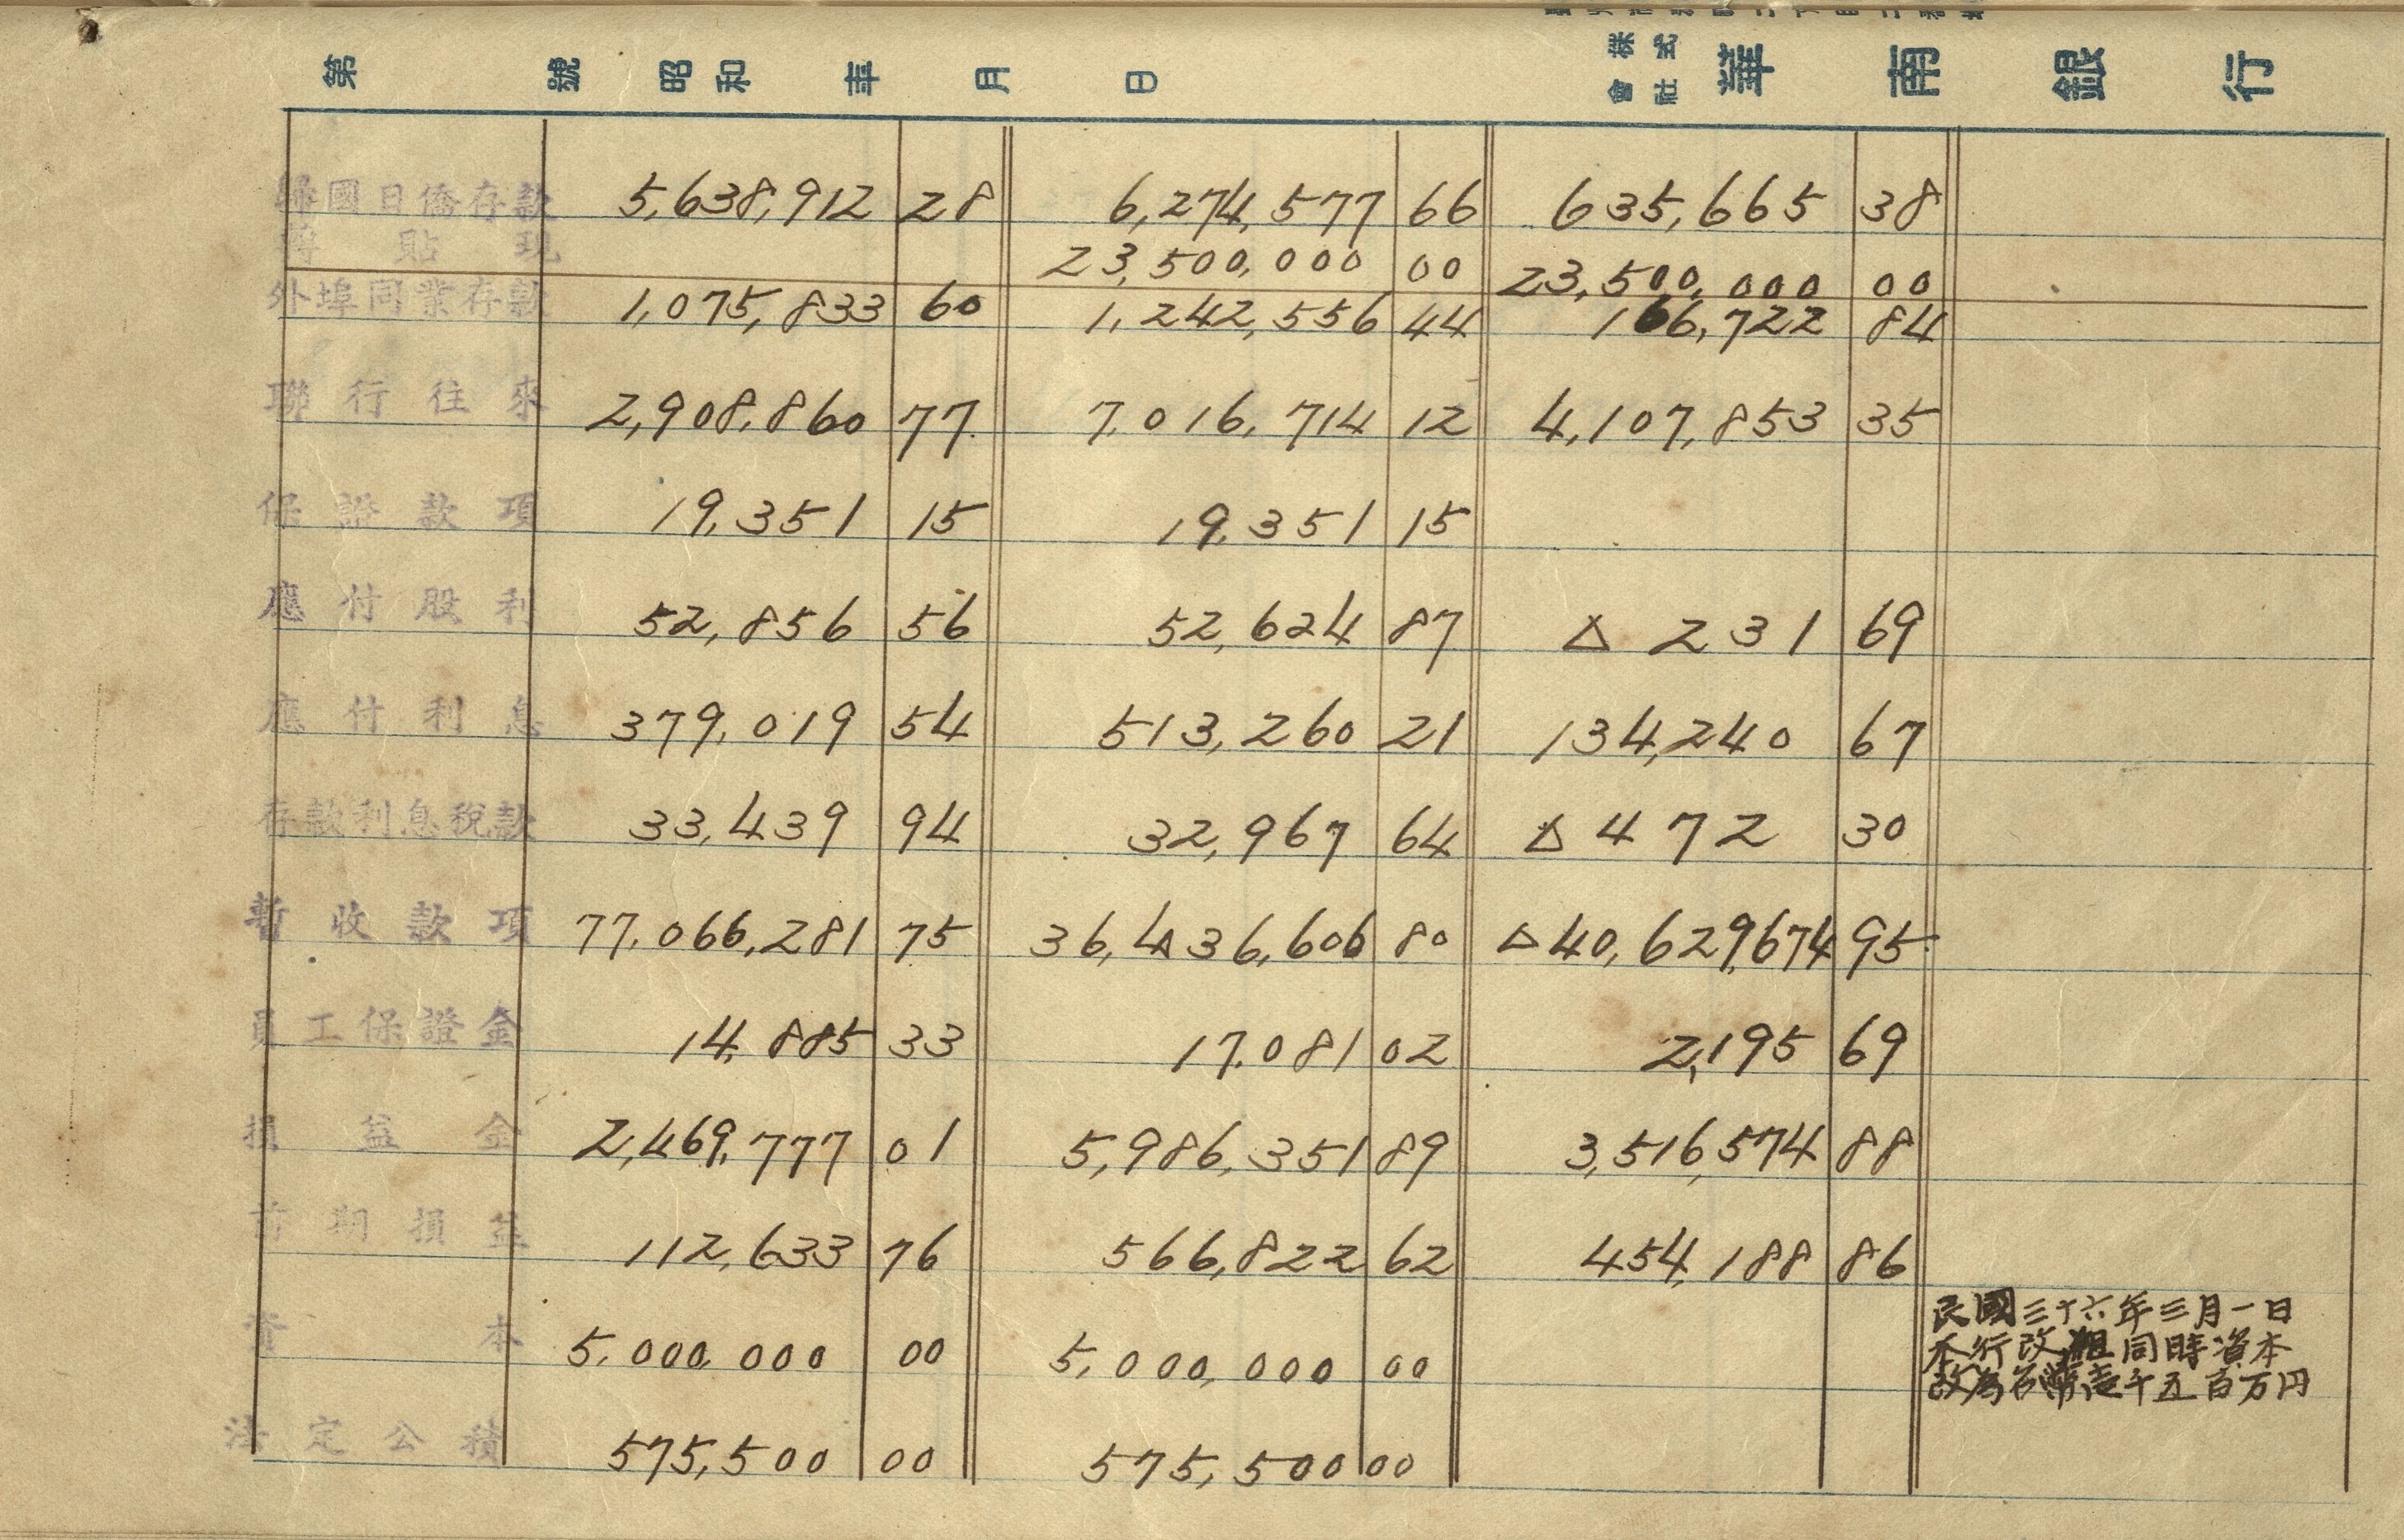 第 號 昭和 年 月 日 株式會社 華南銀行
歸國日僑存款 5,638,912 28 6,274,577 66 635,665 38
轉貼現 23,500,000 00 23,500,000 00
外埠同業存款 1,075,833 60 1,242,556 44 166,722 84
聯行往來 2,908,860 77 7,016,714 12 4,107,853 35
保證款項 19,351 15 19,351 15
應付股利 52,856 56 52,624 87 △ 231 69
應付利息 379,019 54 513,260 21 134,240 67
存款利息稅款 33,439 94 32,967 64 △ 472 30
暫收款項 77,066,281 75 36,436,606 80 △40,629,674 95
員工保證金 14,885 33 17,081 02 2,195 69
損益金 2,469,777 01 5,986,351 89 3,516,574 88
前期損益 112,633 76 566,822 62 454,188 86
資本 5,000,000 00 5,000,000 00
民國三十六年三月一日
本行改組同時資本
改為台幣壱千五百万円
法定公積 575,500 00 575,500 00